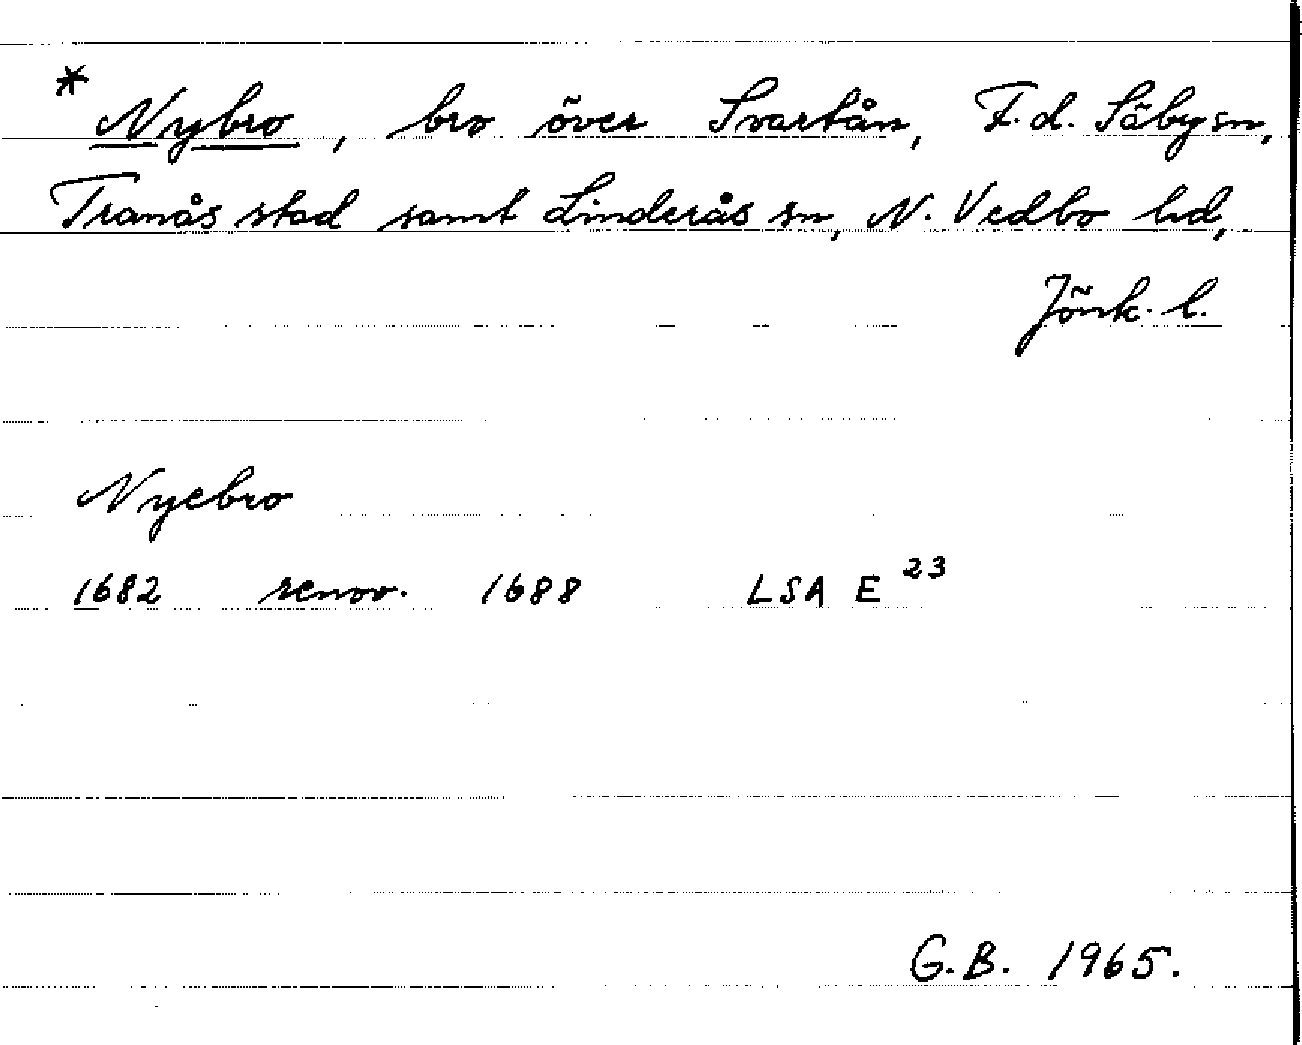 * Nybro, bro över Svartån, F.d. Säby sn,
Tranås stad samt Linderås sn, N. Vedbo hd,
Jönk. l.
Nyebro
1682 renov. 1688 LSA E 23
G.B. 1965.